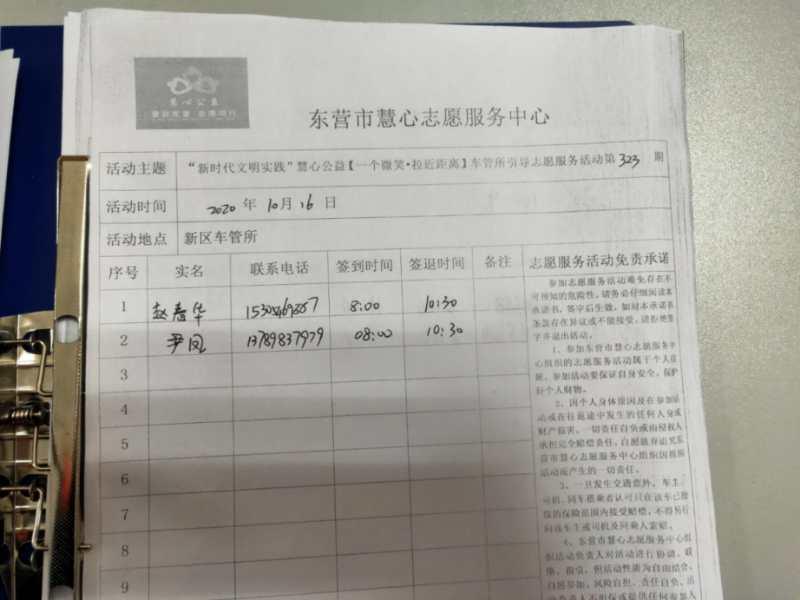 慧心公益
东营市慧心志愿服务中心
活动主题 “新时代文明实践”慧心公益【一个微笑·拉近距离】车管所引导志愿服务活动第323期
活动时间 2020年10月16日
活动地点 新区车管所
序号 实名 联系电话 签到时间 签退时间 备注 志愿服务活动免责承诺
1 赵春华 8:00 10:30
2 尹凤 13789837979 08:00 10:30
3
4
5
6
7
8
9
参加志愿服务活动难免存在不
可预知的危险性，请务必仔细阅读本
承诺书，签字后生效。如对本承诺书
条款存在异议或不能接受，请拒绝签
字并退出活动。
1、参加东营市慧心志愿服务中
心组织的志愿服务活动属于个人自
愿，参加活动要保证自身安全，保护
好个人财物。
2、因个人身体原因及在参加活
动或在往返途中发生的任何人身或
财产损害，一切责任自负或由侵权人
承担完全赔偿责任，自愿放弃追究东
营市慧心志愿服务中心组织因组织
活动而产生的一切责任。
3、一旦发生交通意外，车主、
司机、同车搭乘者认可只在该车已投
保的保险范围内接受赔偿，不得另行
向该车主或司机及同乘人索赔。
4、东营市慧心志愿服务中心组
织活动负责人对活动进行协调、联
络、指引，但活动性质为自由结合、
自愿参加、风险自担、责任自负，活
动负责人不担保或提供任何参加人